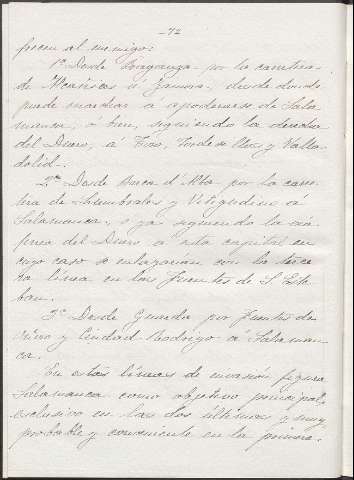 -72
frecen al enemigo:
1ª Desde Braganza por la carretera
de Alcañices a Zamora, desde donde
puede marchar a apoderarse de Sala-
manca, ó bien, siguiendo la derecha
del Duero, a Toro, Tordesillas y Valla-
dolid.
2ª Desde Barca d'Alba por la carre-
tera de Lumbrales y Vitigudino a
Salamanca, o ya siguiendo la via
ferrea del Duero a esta capital en
cuyo caso se enlazarian con la terce-
ra línea en las Fuentes de S. Este-
ban.
3ª Desde Guarda por Fuentes de
Oñoro y Ciudad Rodrigo a Salaman-
ca.
En estas líneas de invasión figura
Salamanca como objetivo principal,
exclusivo en las dos últimas y muy
probable y conveniente en la primera.